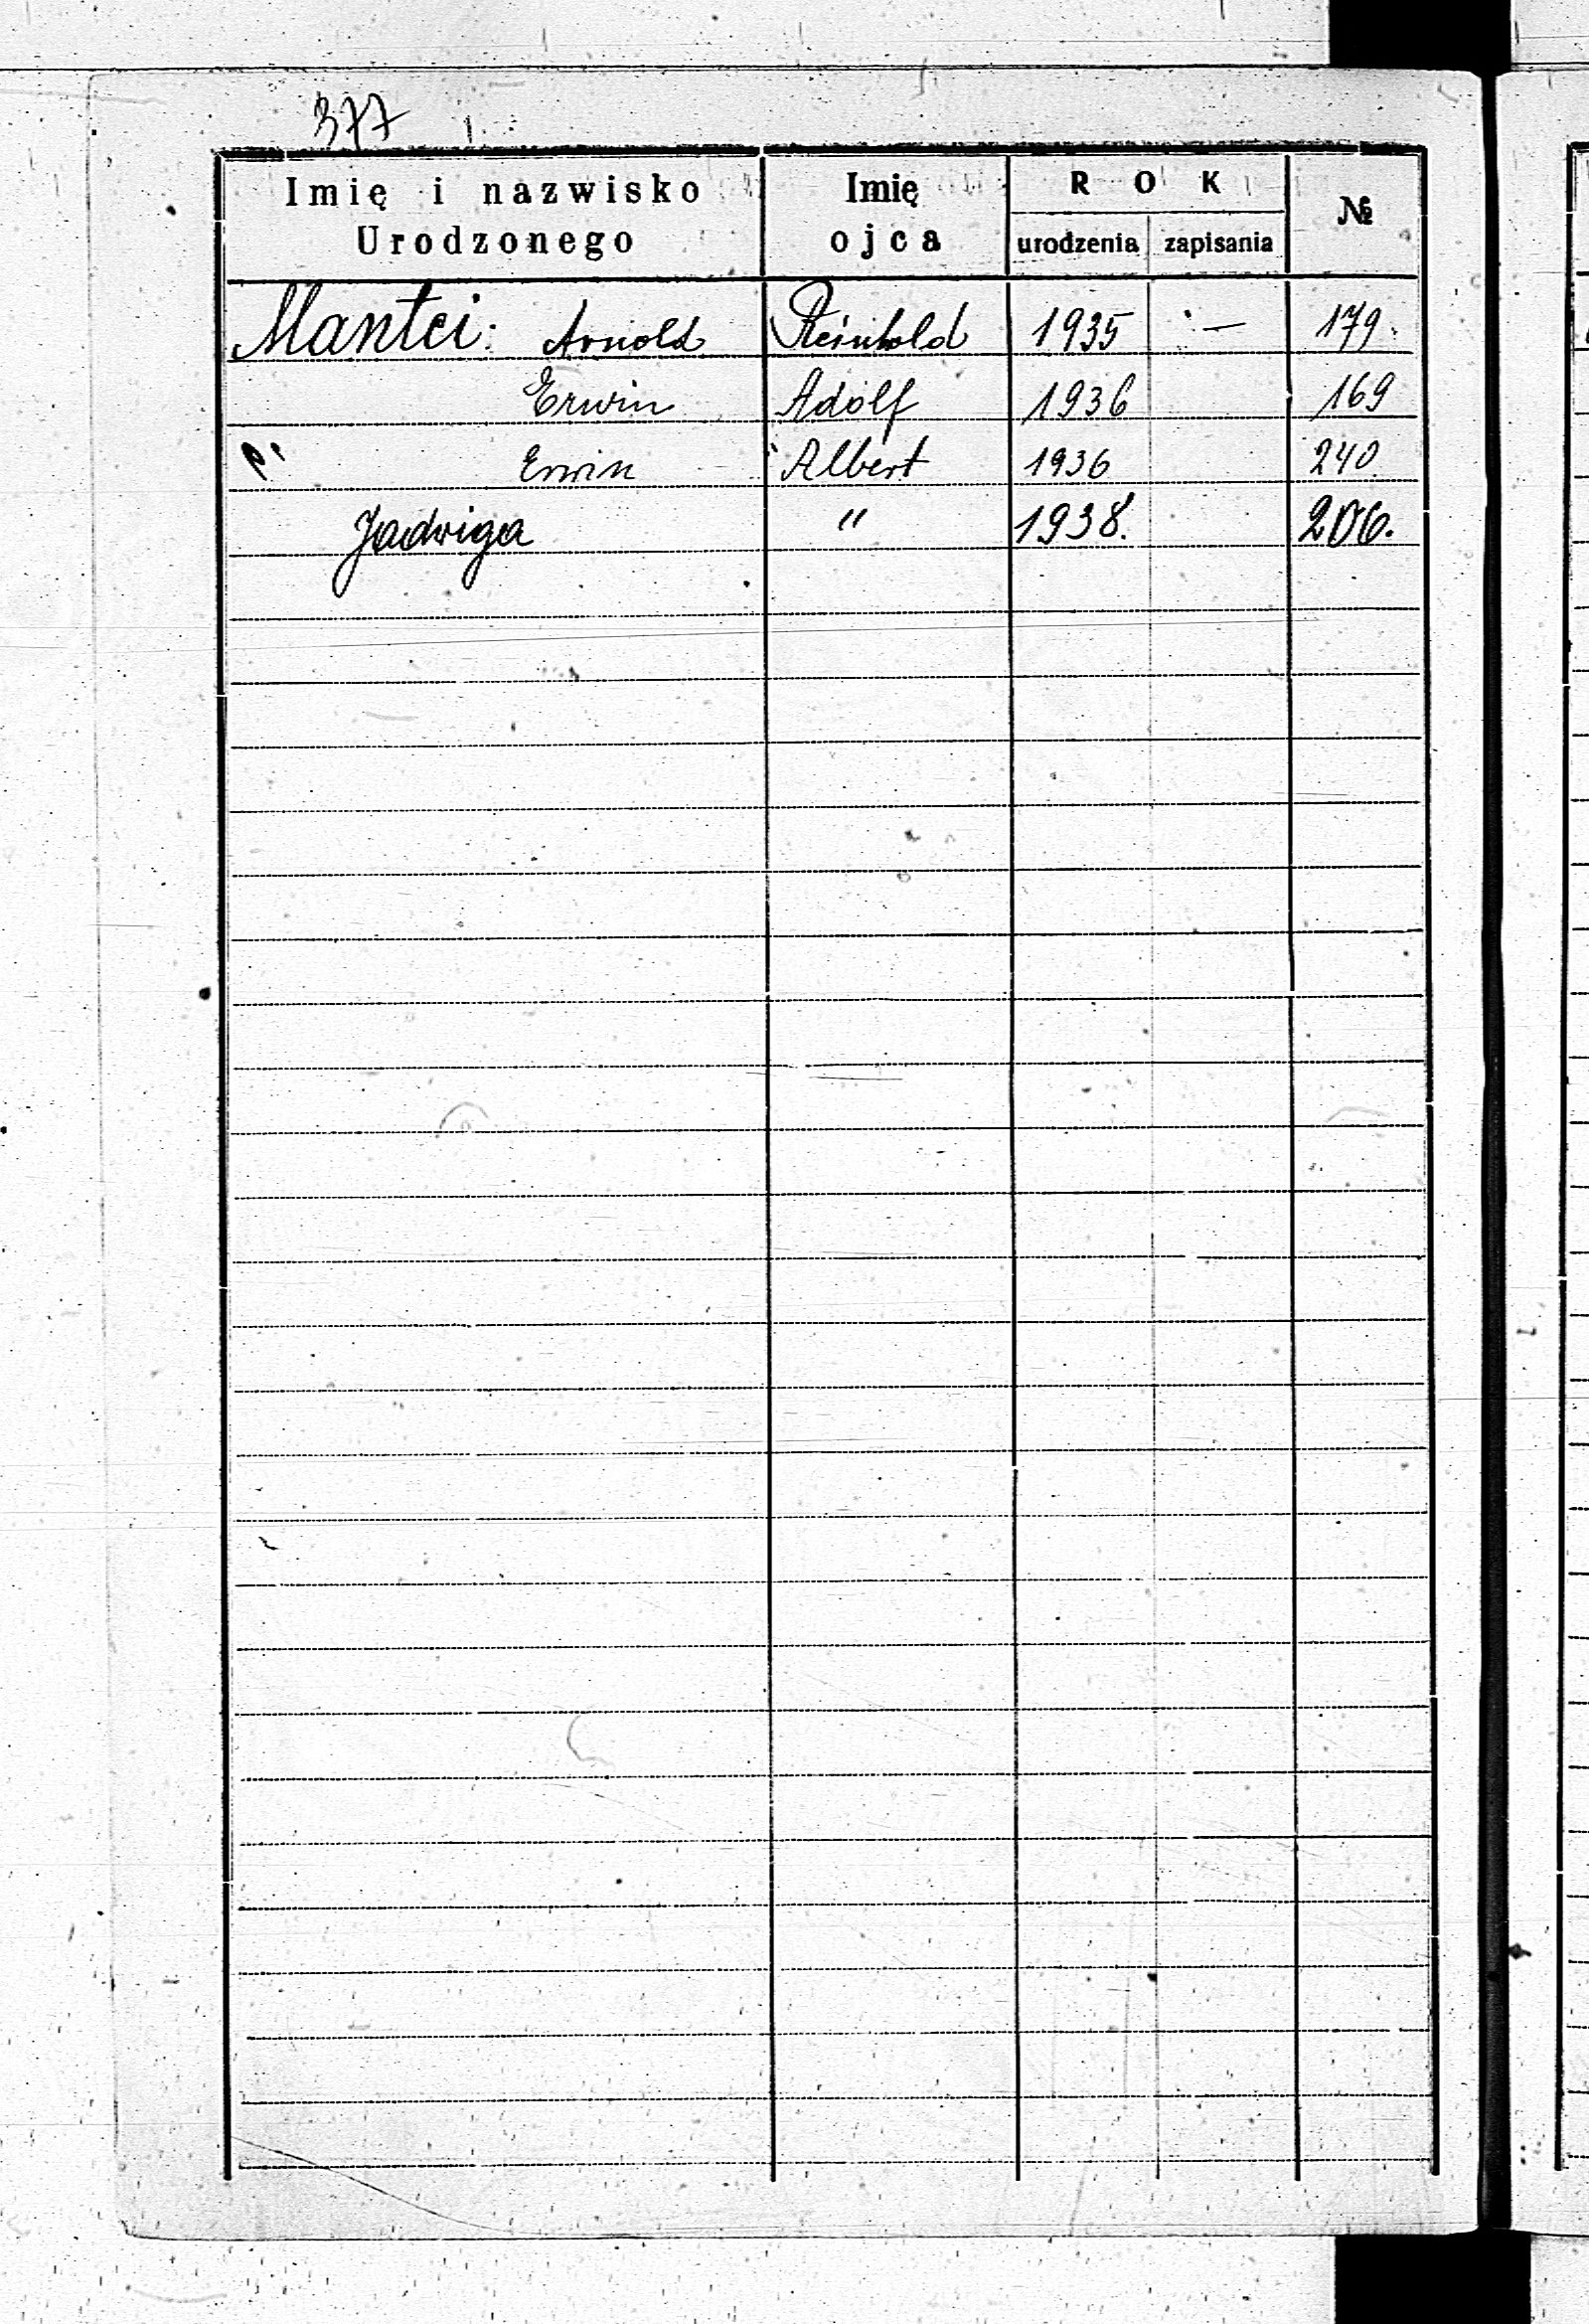 377
Imię i nazwisko Urodzonego Imię ojca ROK urodzenia zapisania №
Mantei: Arnold Reinhold 1935 — 179.
Erwin Adolf 1936 169
Erwin Albert 1936 240
Jadwiga " 1938. 206.